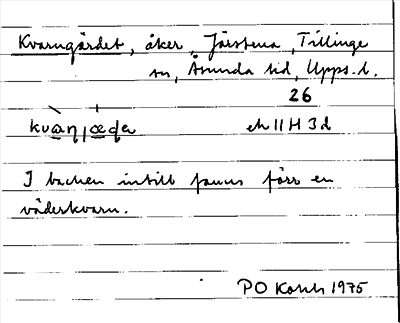 Kvarngärdet, åker, Järstena, Tillinge
sn, Åsunda hd, Upps. l.
26
ek 11 H 3d
I backen intill fanns förr en
väderkvarn.
PO 1975